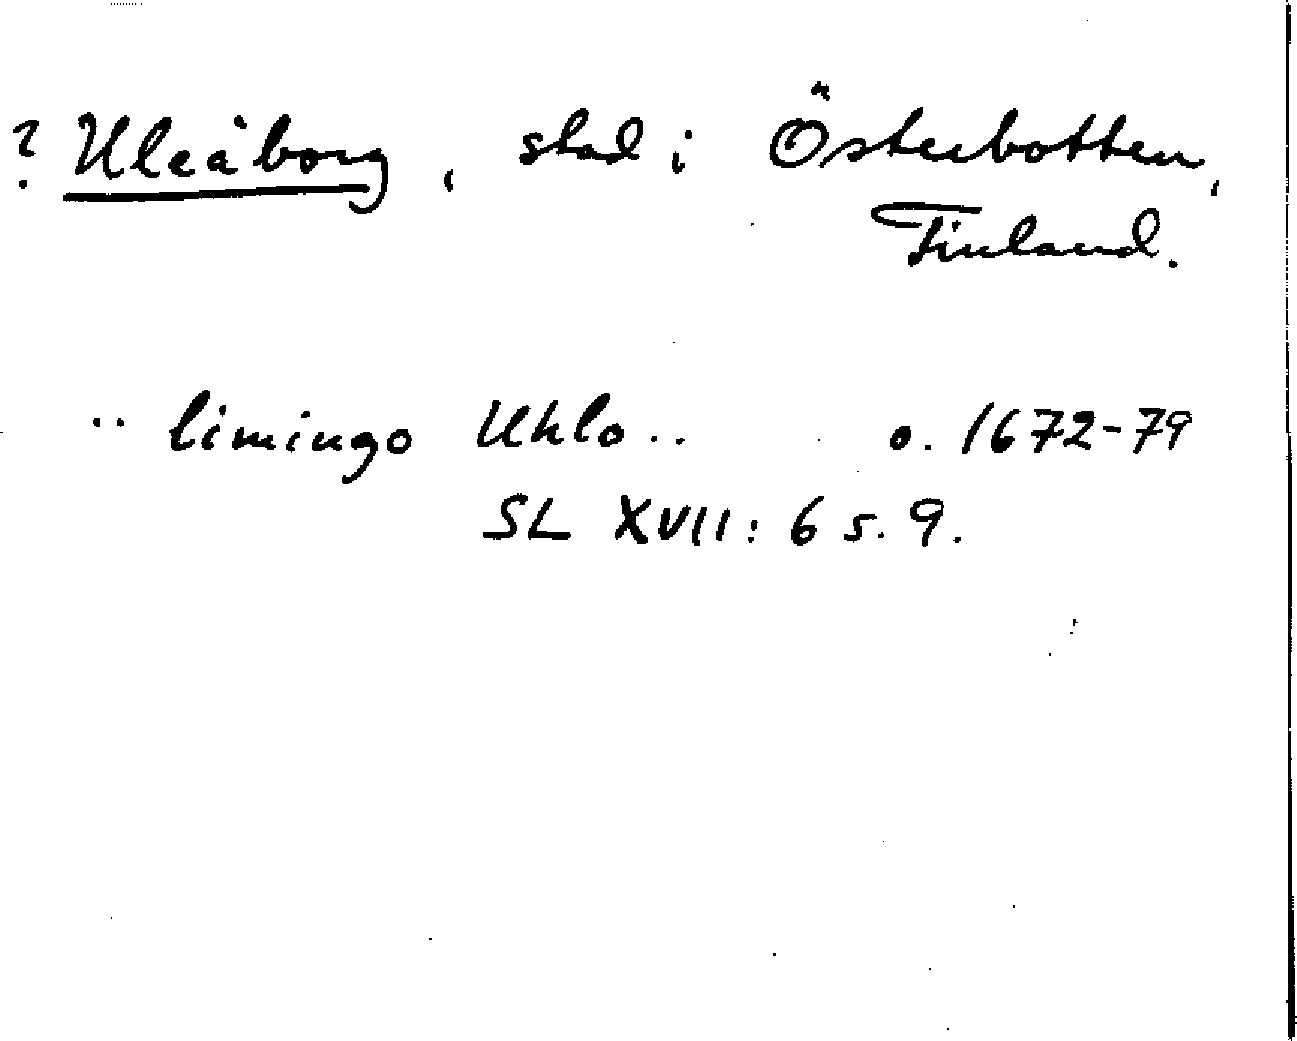 ? Uleåborg, stad i Österbotten,
Finland.
.. limingo Uhlo.. o. 1672-79
SL XVII: 6 s. 9.